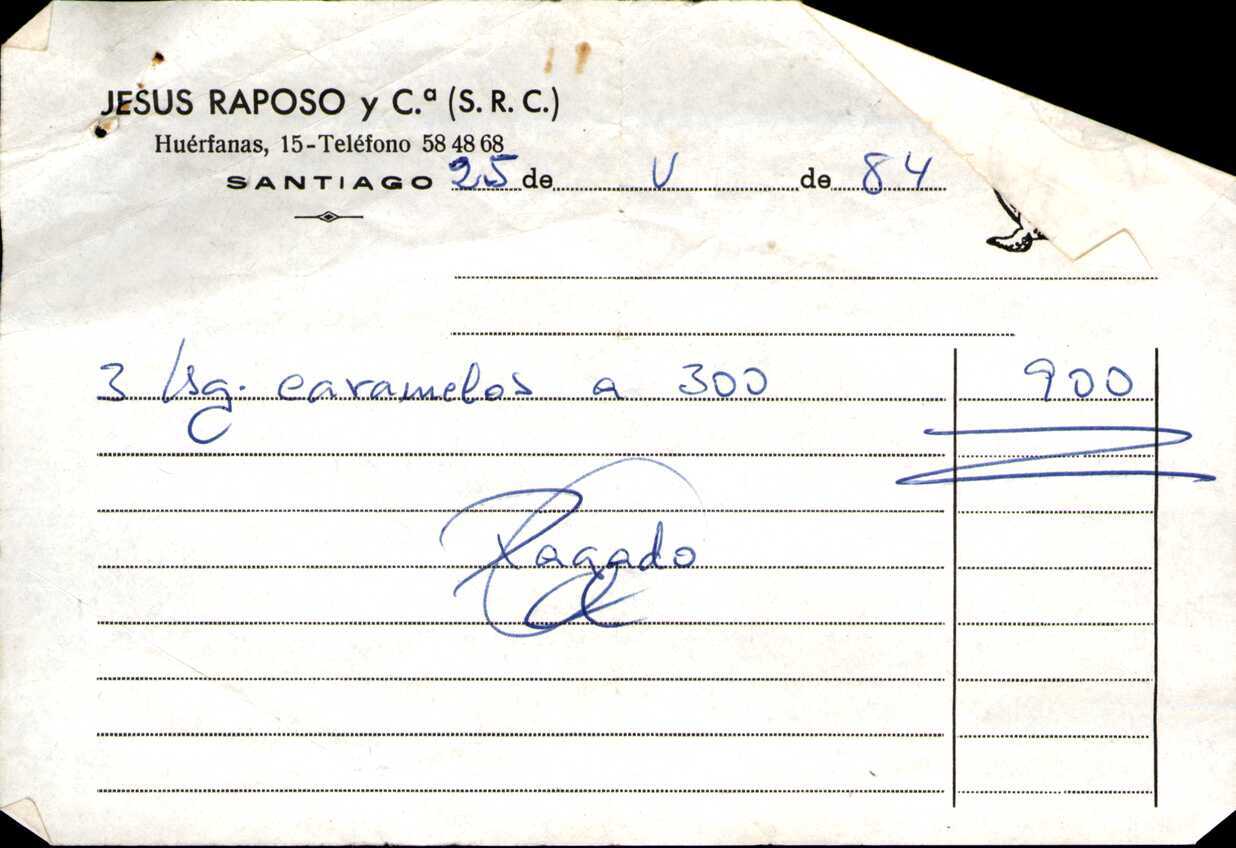 JESUS RAPOSO y C.ª (S. R. C.)
Huérfanas, 15-Teléfono 58 48 68
SANTIAGO 25 de V de 84
3 kg. caramelos a 300 900
Pagado